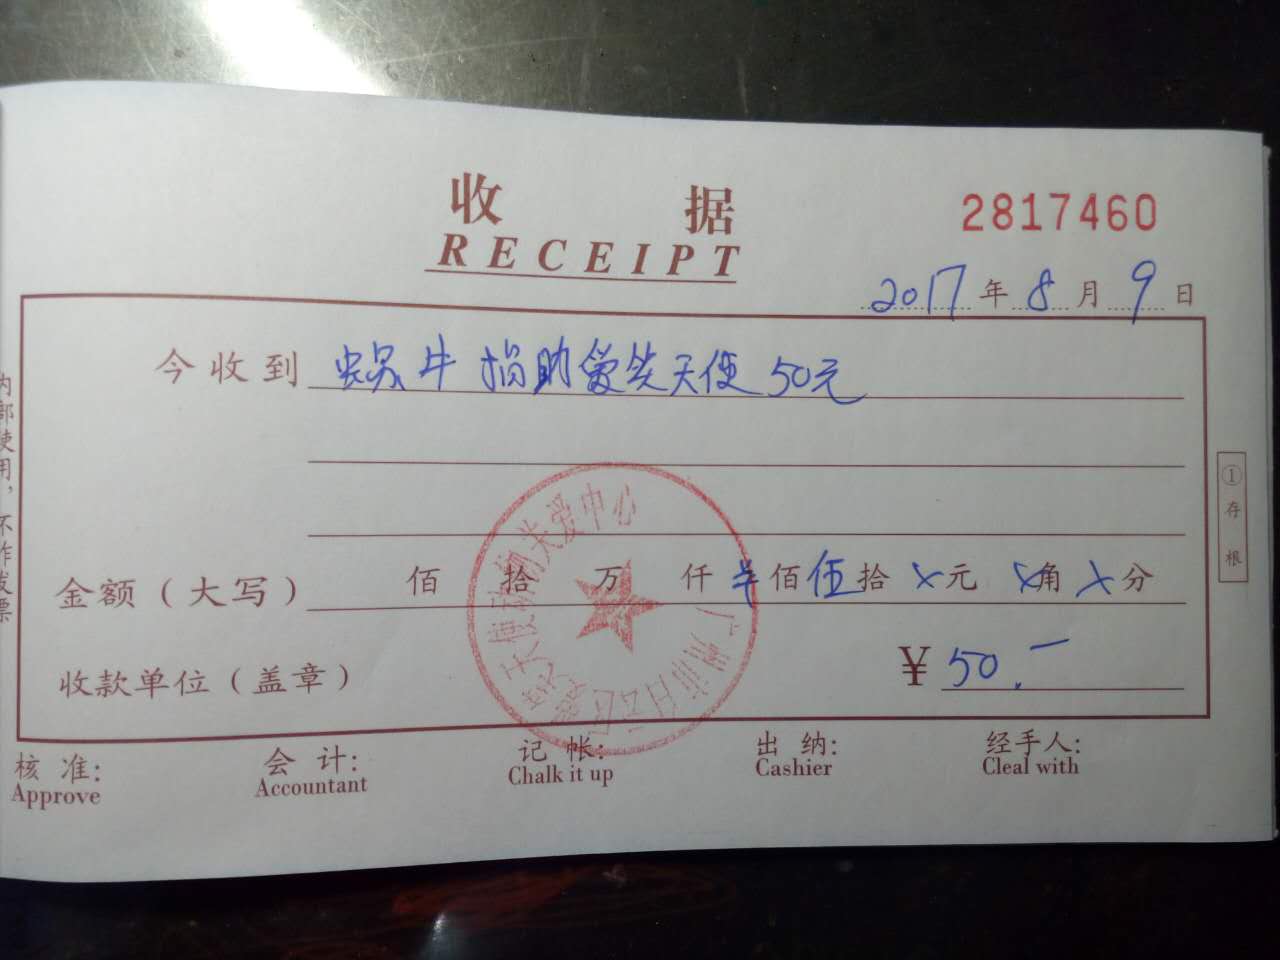 收 据
RECEIPT
2817460
2017 年 8 月 9 日
今收到 蜗牛捐助爱笑天使50元
金额（大写） 佰 拾 万 仟 羊 佰 伍 拾 X 元 X 角 X 分
收款单位（盖章）
¥ 50.—
广州市白云区爱笑天使动物关爱中心
核 准:
Approve
会 计:
Accountant
记 帐:
Chalk it up
出 纳:
Cashier
经手人:
Cleal with
内部使用，不作发票
① 存 根